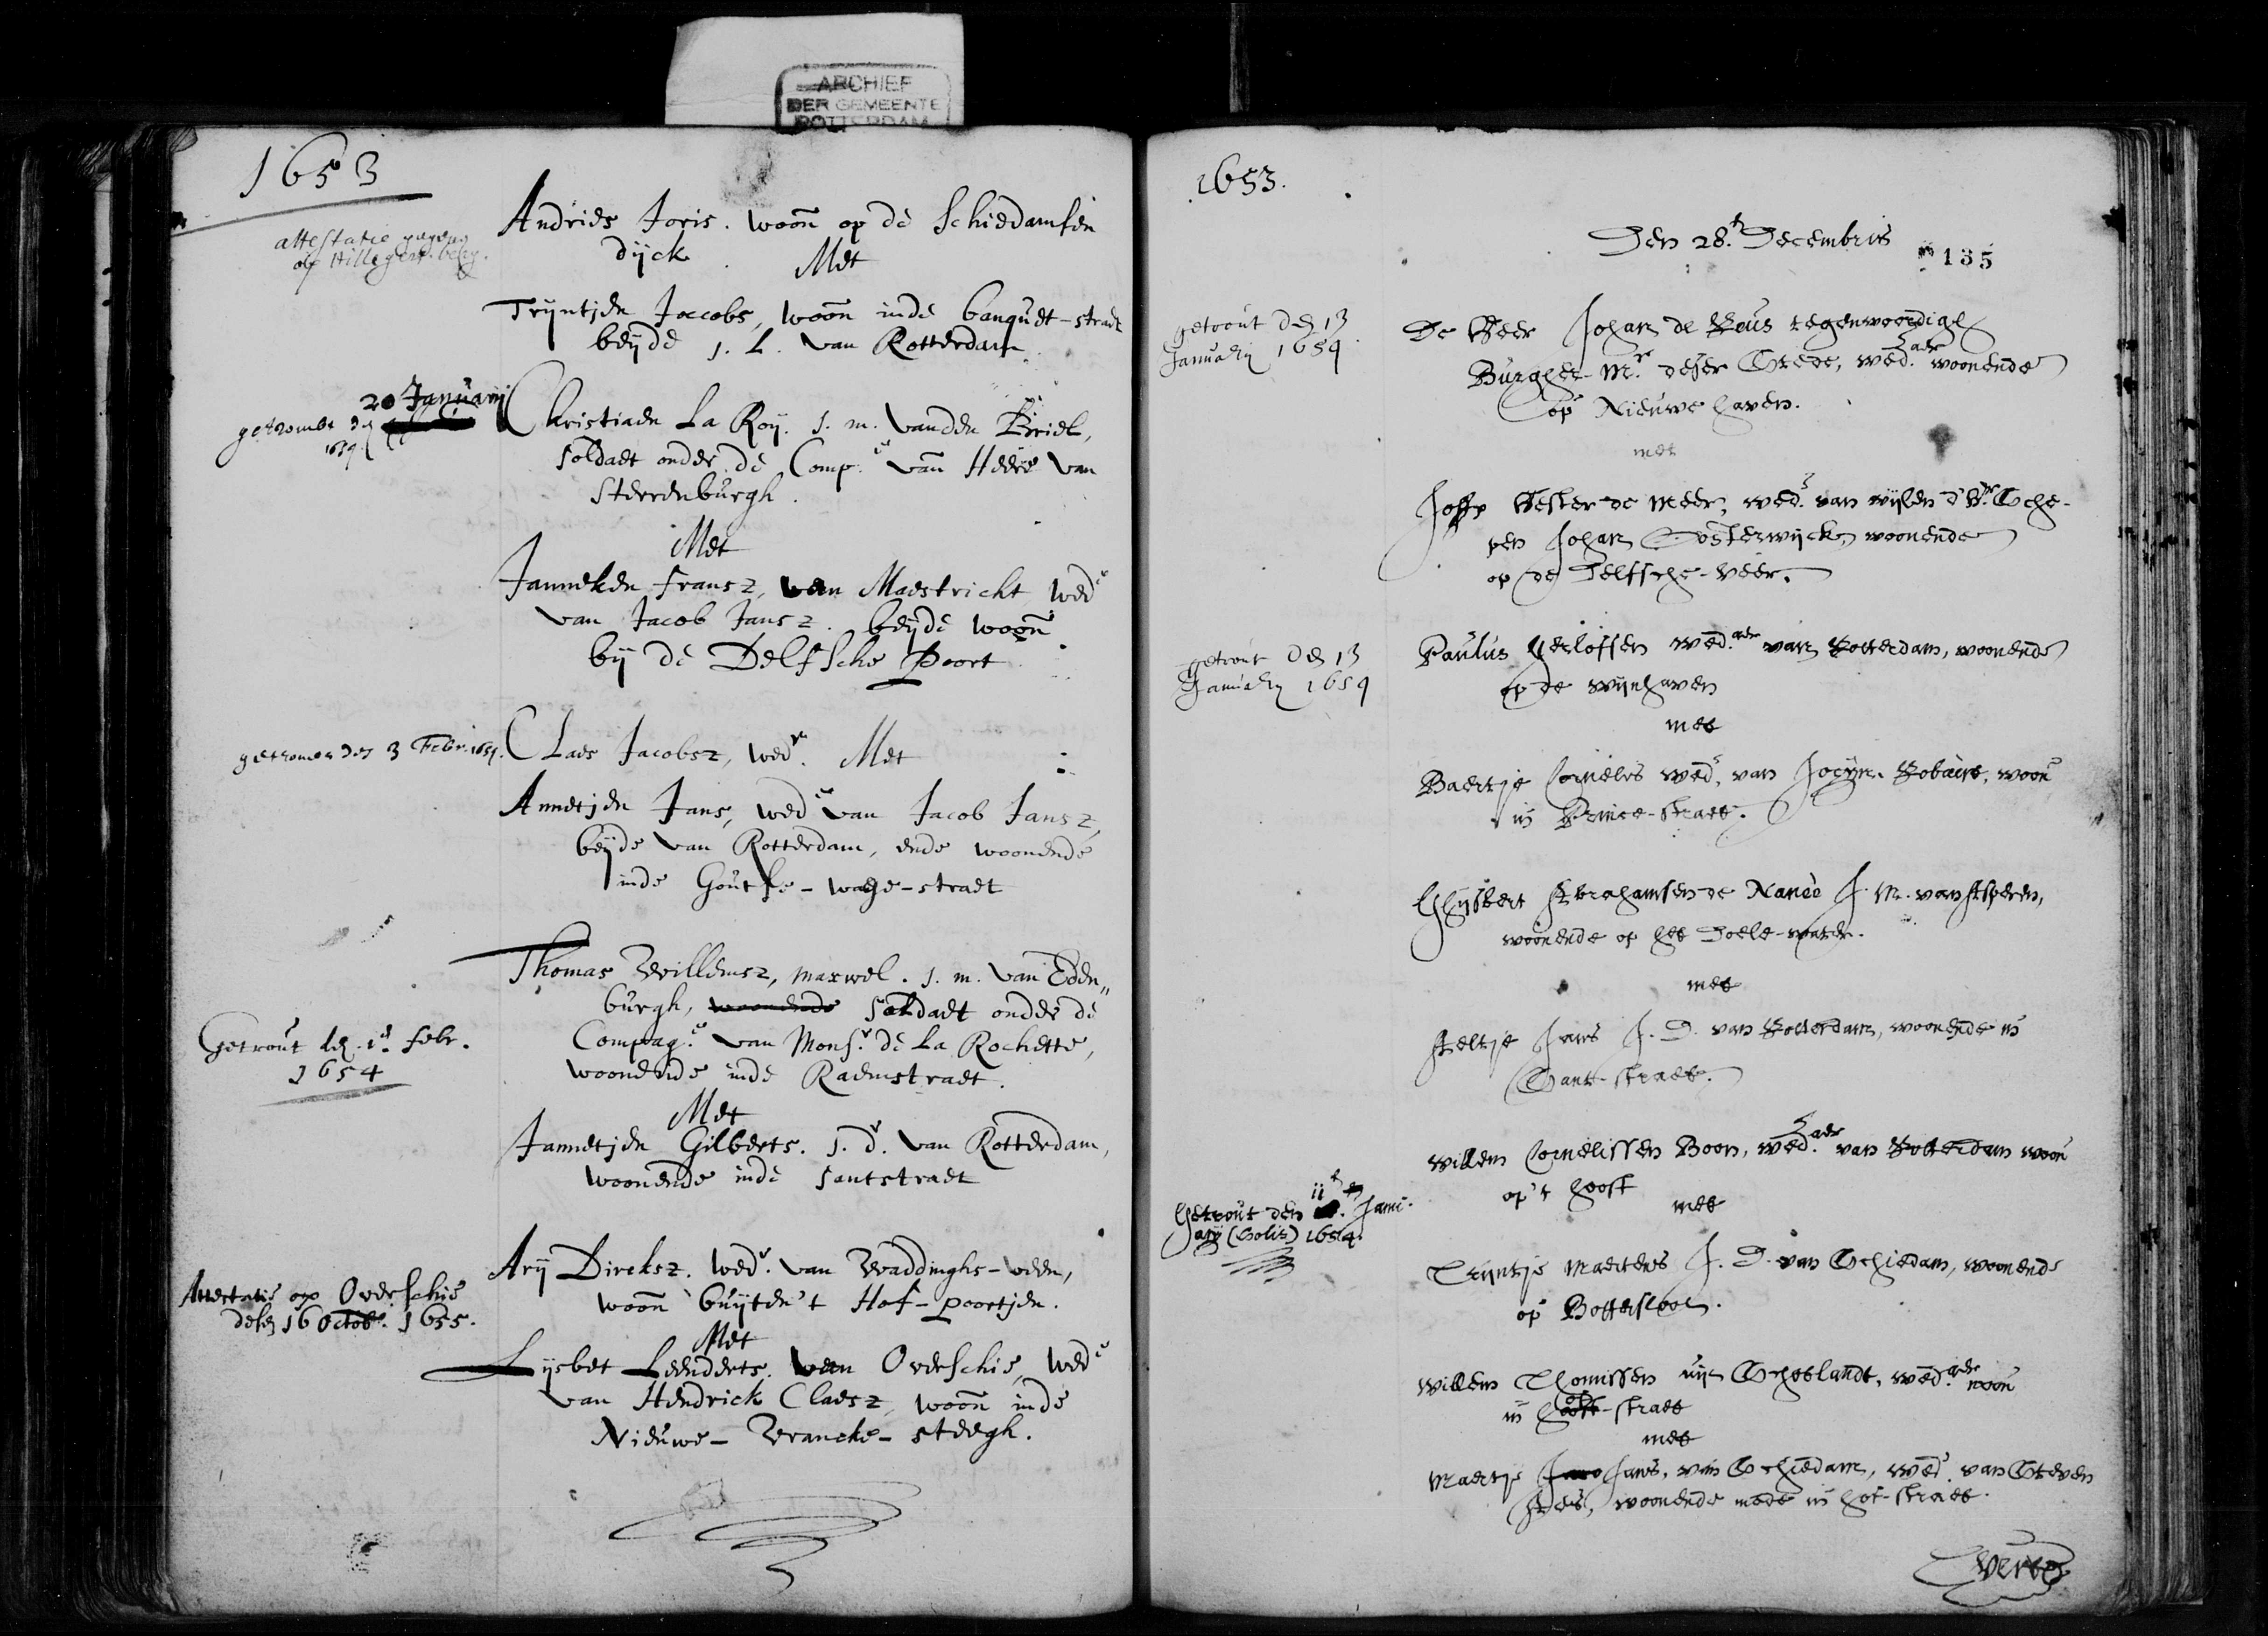 ARCHIEF
DER GEMEENTE
ROTTERDAM
1653
attestatie gegeven
op Hillegers-berg.
Andries Joris. woon̄ op de Schiedamsen
dijck. Met
Trijntjen Jacobs, woon̄ inde banquet-straet
beijde J. L. van Rotterdam
20 Januarij
getrouwt den
1654
Christiaen La Roy. J. m. vanden Briel,
soldaet onder de Comp.e van Heere van
Sterrenburgh.
Met
Janneken fransz, van Maestricht wed.e
van Jacob Jansz. beijde woon̄
bij de Delfsche Poort
getrouwt den 3 Febr. 1654.
Claes Jacobsz, wed.r Met
Annetjen Jans, wed.e van Jacob Jansz,
beijde van Rotterdam, ende woonende
inde Goutse-wage-straet
Thomas Willemsz, maxwel. J. m. van Eden„
burgh, woonende soldaet onder de
Compag.e van Mons.r de La Rochette,
woonende inde Raemstraet.
Getrout den 1.e febr.
1654
Met
Jannetjen Gilberts. J. d. van Rotterdam,
woonende inde santstraet
Attestatie op Overschie
desen 16 Octob. 1655.
Arij Dircksz. wed.r van Waddinghs-veen,
woon̄ buijten't Hof-poortjen.
Met
Lijsbet Leenderts. van Overschie, wed.e
van Hendrick Claesz, woon̄ inde
Nieuwe-Vrancke-steegh.
1653.
Den 28.e Decembris
135
getrout den 13
January 1654.
De Heer Johan de Reus tegenwoordigh
Burgher-M.r deser Stede, wed.aer woonende
op Nieuwe haven.
met
Joffr Hester de Meer, wed.e van wijlen d'H.r Sche-
pen Johan Oosterwijck, woonende
op de Delfsche-veer.
getrout den 13
January 1654
Paulus Gerlofsen wed.aer van Rotterdam, woonende
op de wijnhaven
met
Baertje Cornelis wed.e van Robaert, woon̄
in Prince-straet.
Ghijsbert Abrahamsen de J. M. van Asperen,
woonende op het Doele-water.
met
Aeltje Jans J. D. van Rotterdam, woonende in
Sant-straet.
Getrout den 11 Janu-
arij (Solis) 1654.
Willem Cornelissen Boon, wed.aer van Rotterdam woon̄
op't hooft
met
Trijntje Maertens J. D. van Schiedam, woonende
op Bottersloot.
Willem Thomissen uijt Schotlandt, wed.aer woon̄
in hof-straet
met
Maertje Jans Jans, van Schiedam, wed.e van Steven
woonende mede in hof-straet.
verte